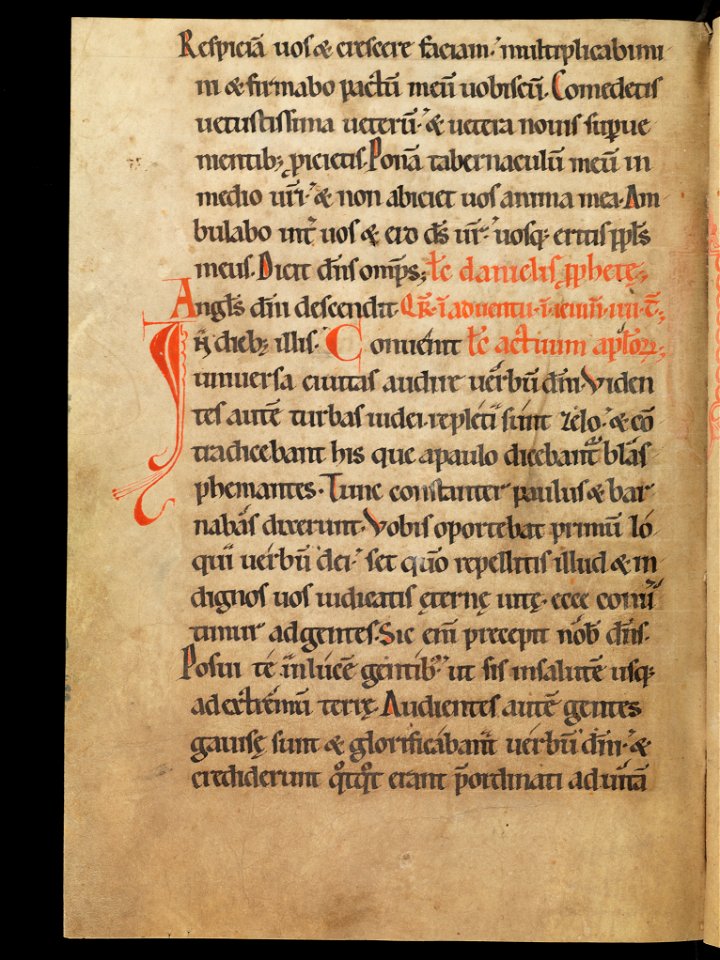 Respiciā uos & crescere faciam. multiplicabimi
ni & firmabo pactū meū uobiscū. Comedetis
uetustissima ueterū. & uetera nouis supue
mentib; ꝓicietis. Ponā tabernaculū meū in
medio ur̄i. & non abiciet uos anima mea. Am
bulabo int̄ uos & ero d̄s ur̄. uosq; eritis ppl̄s
meus. Dicit dn̄s omp̄s; Lc̄ danielis ꝓphetę;
Angl̄s dn̄i descendit.
In dieb; illis. Conuēnit Lc̄ actuum apl̄oꝝ;
uniuersa ciuitas audire uerbū dn̄i. Viden
tes autē turbas iudei. repleti sunt zelo. & cō
tradicebant his que a paulo dicebant blas
phemantes. Tunc constanter paulus & bar
nabas dixerunt. Vobis oportebat primū lo
qui uerbū dei. set qūo repellitis illud & in
dignos uos iudicatis ęternę uitę. ecce conū
timur ad gentes. Sic eni precepit nob̄ dn̄s.
Posui te in lucē gentib; ut sis in salutē usq;
ad extremū terrę. Audientes autē gentes
gauisę sunt & glorificabant uerbū dn̄i. &
crediderunt qͦtqͦt erant p̄ordinati ad uitā